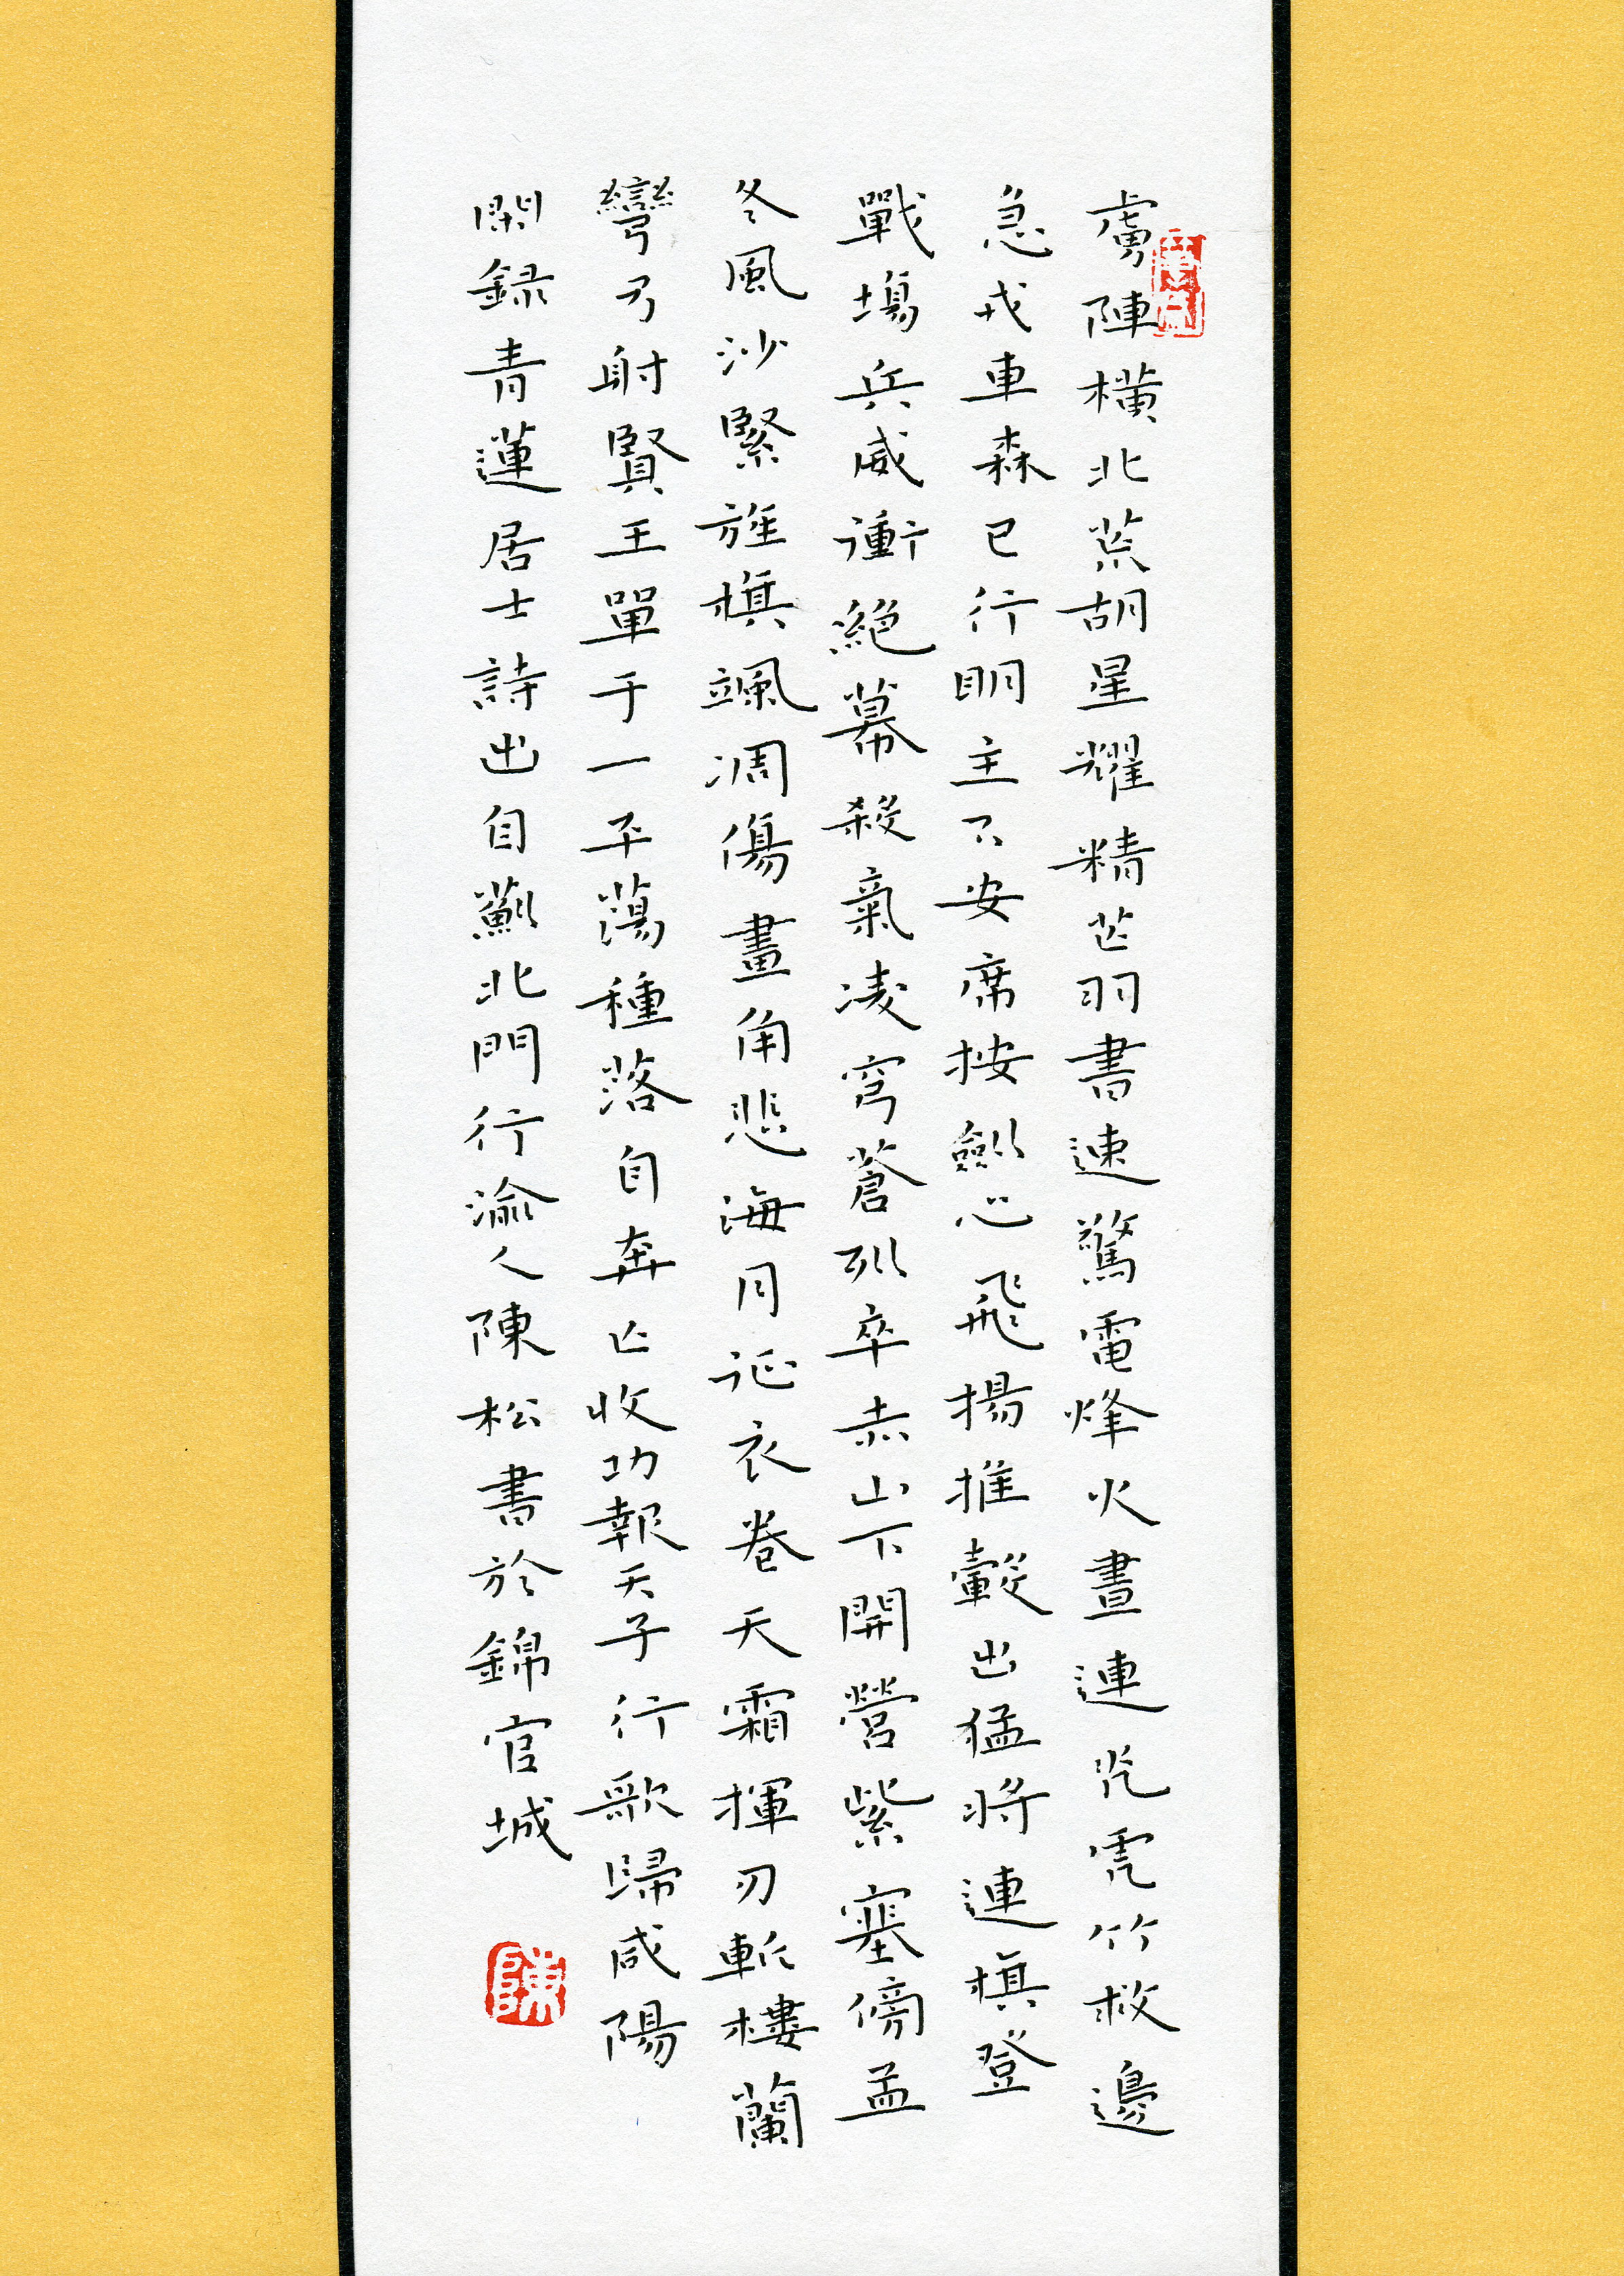 虜陣橫北荒胡星耀精芒羽書速驚電烽火晝連光虎竹救邊
急戎車森已行明主不安席按劍心飛揚推轂出猛將連旗登
戰場兵威衝絕幕殺氣凌穹蒼列卒赤山下開營紫塞傍孟
冬風沙緊旌旗颯凋傷畫角悲海月征衣卷天霜揮刃斬樓蘭
彎弓射賢王單于一平蕩種落自奔亡收功報天子行歌歸咸陽
閑録青蓮居士詩出自薊北門行渝人陳松書於錦官城
陳